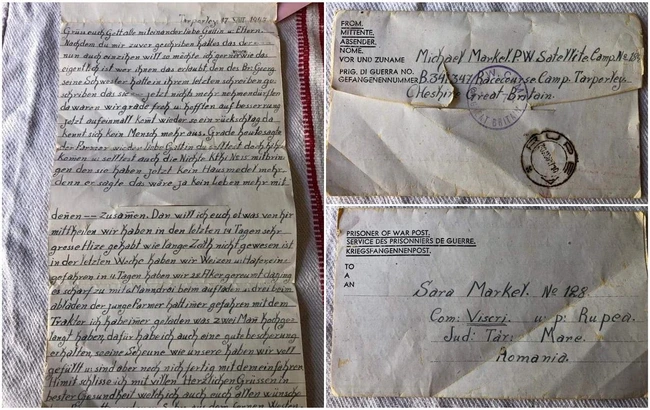 Tarperley
Grüss euch Gott alle miteinander liebe Godin u. Eltern.
Nachdem du mir zuvor geschrieben hattes das der
nun auch einziehen will so möchte ich gerne
eigentlich ist wer ihnen das erlaubt den des
seine Schwester hatte in ihrem letzten schreiben ge
schrieben das sie jetzt nicht mehr nehmen dürften
da waren wir grade froh u. hofften auf besserung
jetzt auf einmall kemt wieder so ein rückschlag da
kennt sich kein Mensch mehr aus. Grade heute sagte
der Farmer wieder liebe Gotin du solltest doch hiher
komen u. solltest auch die Nichte Kthi No 15 mitbrin
gen den sie haben jetzt kein Hausmedel mehr
denn er sagte das wäre ja kein Leben mehr mit
denen -- zusamen. Dan will ich euch etwas von hir
mittheilen wir haben in den letzten 14 Tagen sehr
grose Hize gehabt wie lange Zeit nicht gewesen ist
in der letzten Woche haben wir Weizen u. Hafer ein
gefahren in 4 Tagen haben wir 22 Aker gereumt da ging
es scharf zu mit 2 Manndran beim aufladen u. drei beim
abladen der junge Farmer hatt imer gefahren mit dem
Traktor ich habe imer geladen was zwei Man hochge
langt haben, dafür habe ich auch eine gute bescherung
erhalten, so eine Scheune wie unsere haben wir voll
gefüllt u. sind aber noch nicht fertig mit dem einfahren
Hirmit schlisse ich mit villen Herzlichen Grüssen in
bester Gesundheit welch ich auch euch allen wünsche
FROM.
MITTENTE.
ABSENDER.
NOME.
VOR UND ZUNAME Michael Markel. P.W. Satellite Camp. No
PRIG. DI GUERRA NO.
GEFANGENENNUMMER B.341347 Racecourse Camp. Tarporley.
Cheshire Great Britain.
RUPEA
PRISONER OF WAR POST.
SERVICE DES PRISONNIERS DE GUERRE.
KRIEGSFANGENENPOST.
TO
A
AN
Sara Markel. No 128.
Com: Viscri. u. p: Rupea.
Jud: Târ: Mare.
Romania.